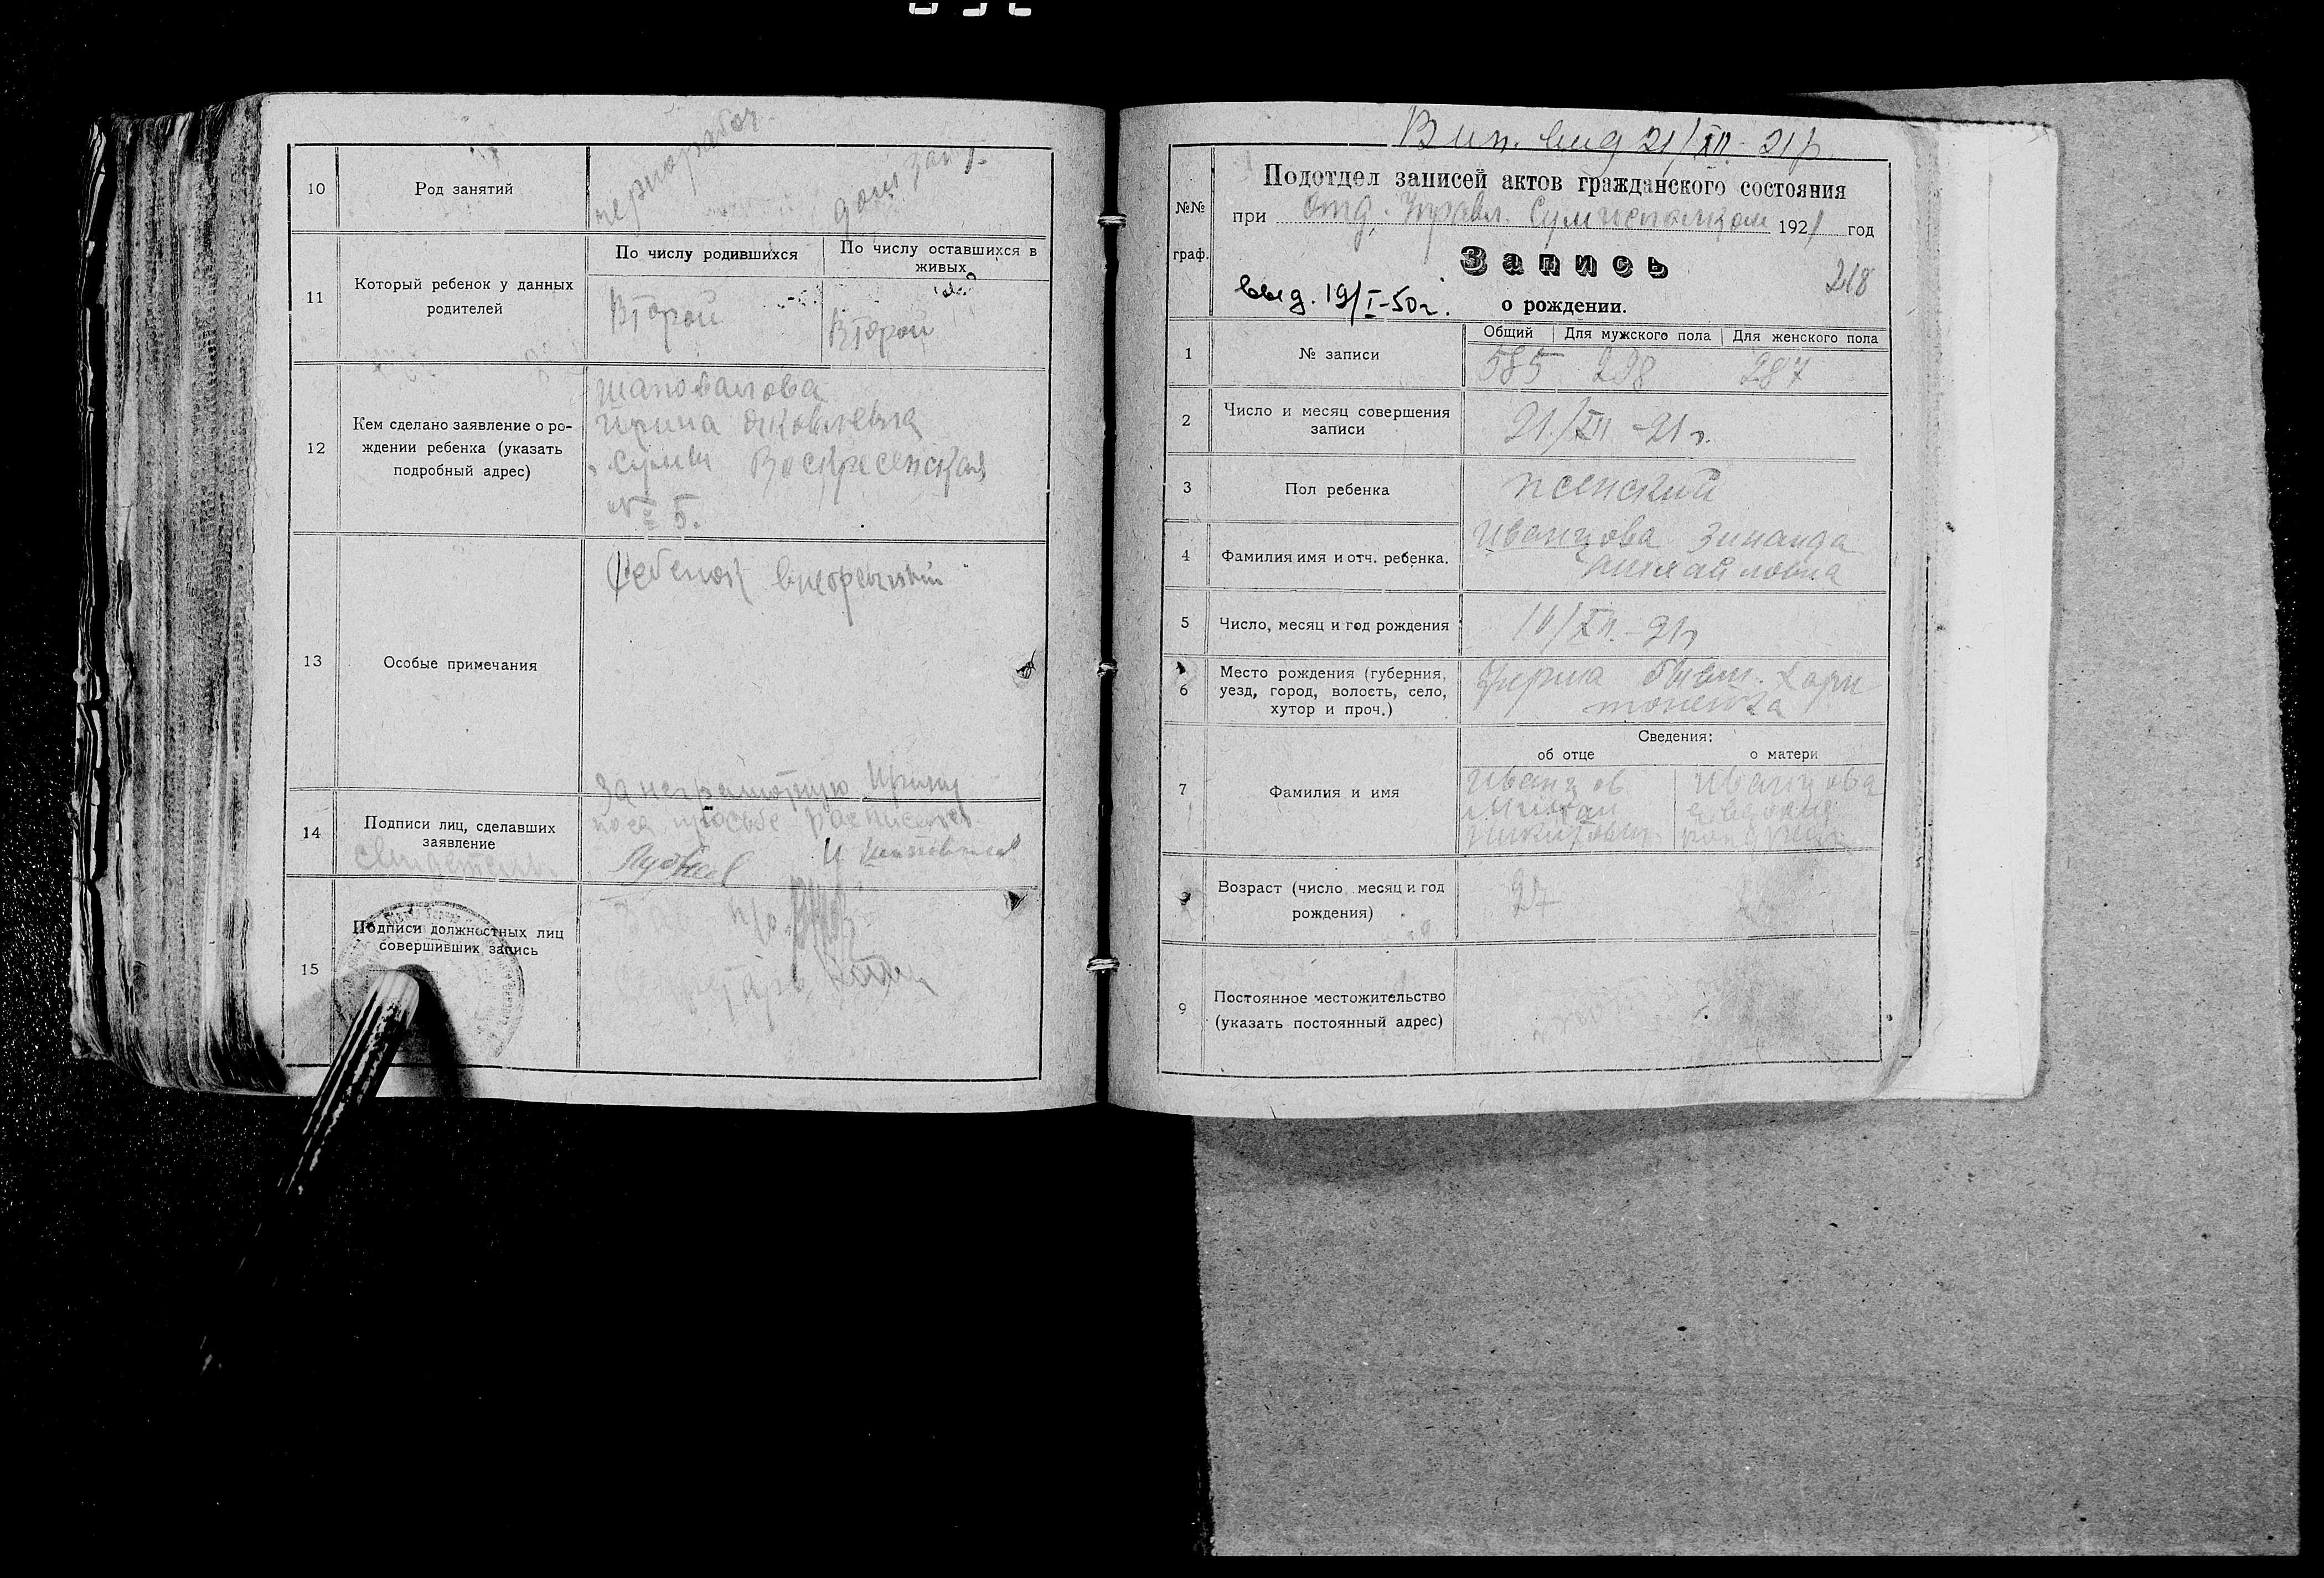 10
Род занятий
чернорабоч.
дом. зан.
11
Который ребенок у данных
родителей
По числу родившихся
По числу оставшихся в
живых
Второй
Второй
12
Кем сделано заявление о ро-
ждении ребенка (указать
подробный адрес)
Шаповалова
Ирина Яковлевна
Сумы Воскресенская
№ 5.
13
Особые примечания
Ребенок внебрачный
За неграмотную Ирину
просьбе расписался
14
Подписи лиц, сделавших
заявление
свидетели
15
Подписи должностных лиц
совершивших запись
Вип. вид 21/XII-21р.
№№
граф.
Подотдел записей актов гражданского состояния
при Отд. Управл. Сумисполком 1921 год
Запись
218
выд. 19/I-50г.
о рождении.
1
№ записи
Общий
Для мужского пола
Для женского пола
585
298
287
2
Число и месяц совершения
записи
21/XII-21г.
3
Пол ребенка
женский
4
Фамилия имя и отч. ребенка.
Иванцова Зинаида
Михайловна
5
Число, месяц и год рождения
/XII.-21г
6
Место рождения (губерния,
уезд, город, волость, село,
хутор и проч.)
бывш. Хари
тоненка
Сведения:
об отце
о матери
7
Фамилия и имя
Иванцов
Михаил
Иванцова
Евдокия
Возраст (число месяц и год
рождения)
27
9
Постоянное местожительство
(указать постоянный адрес)